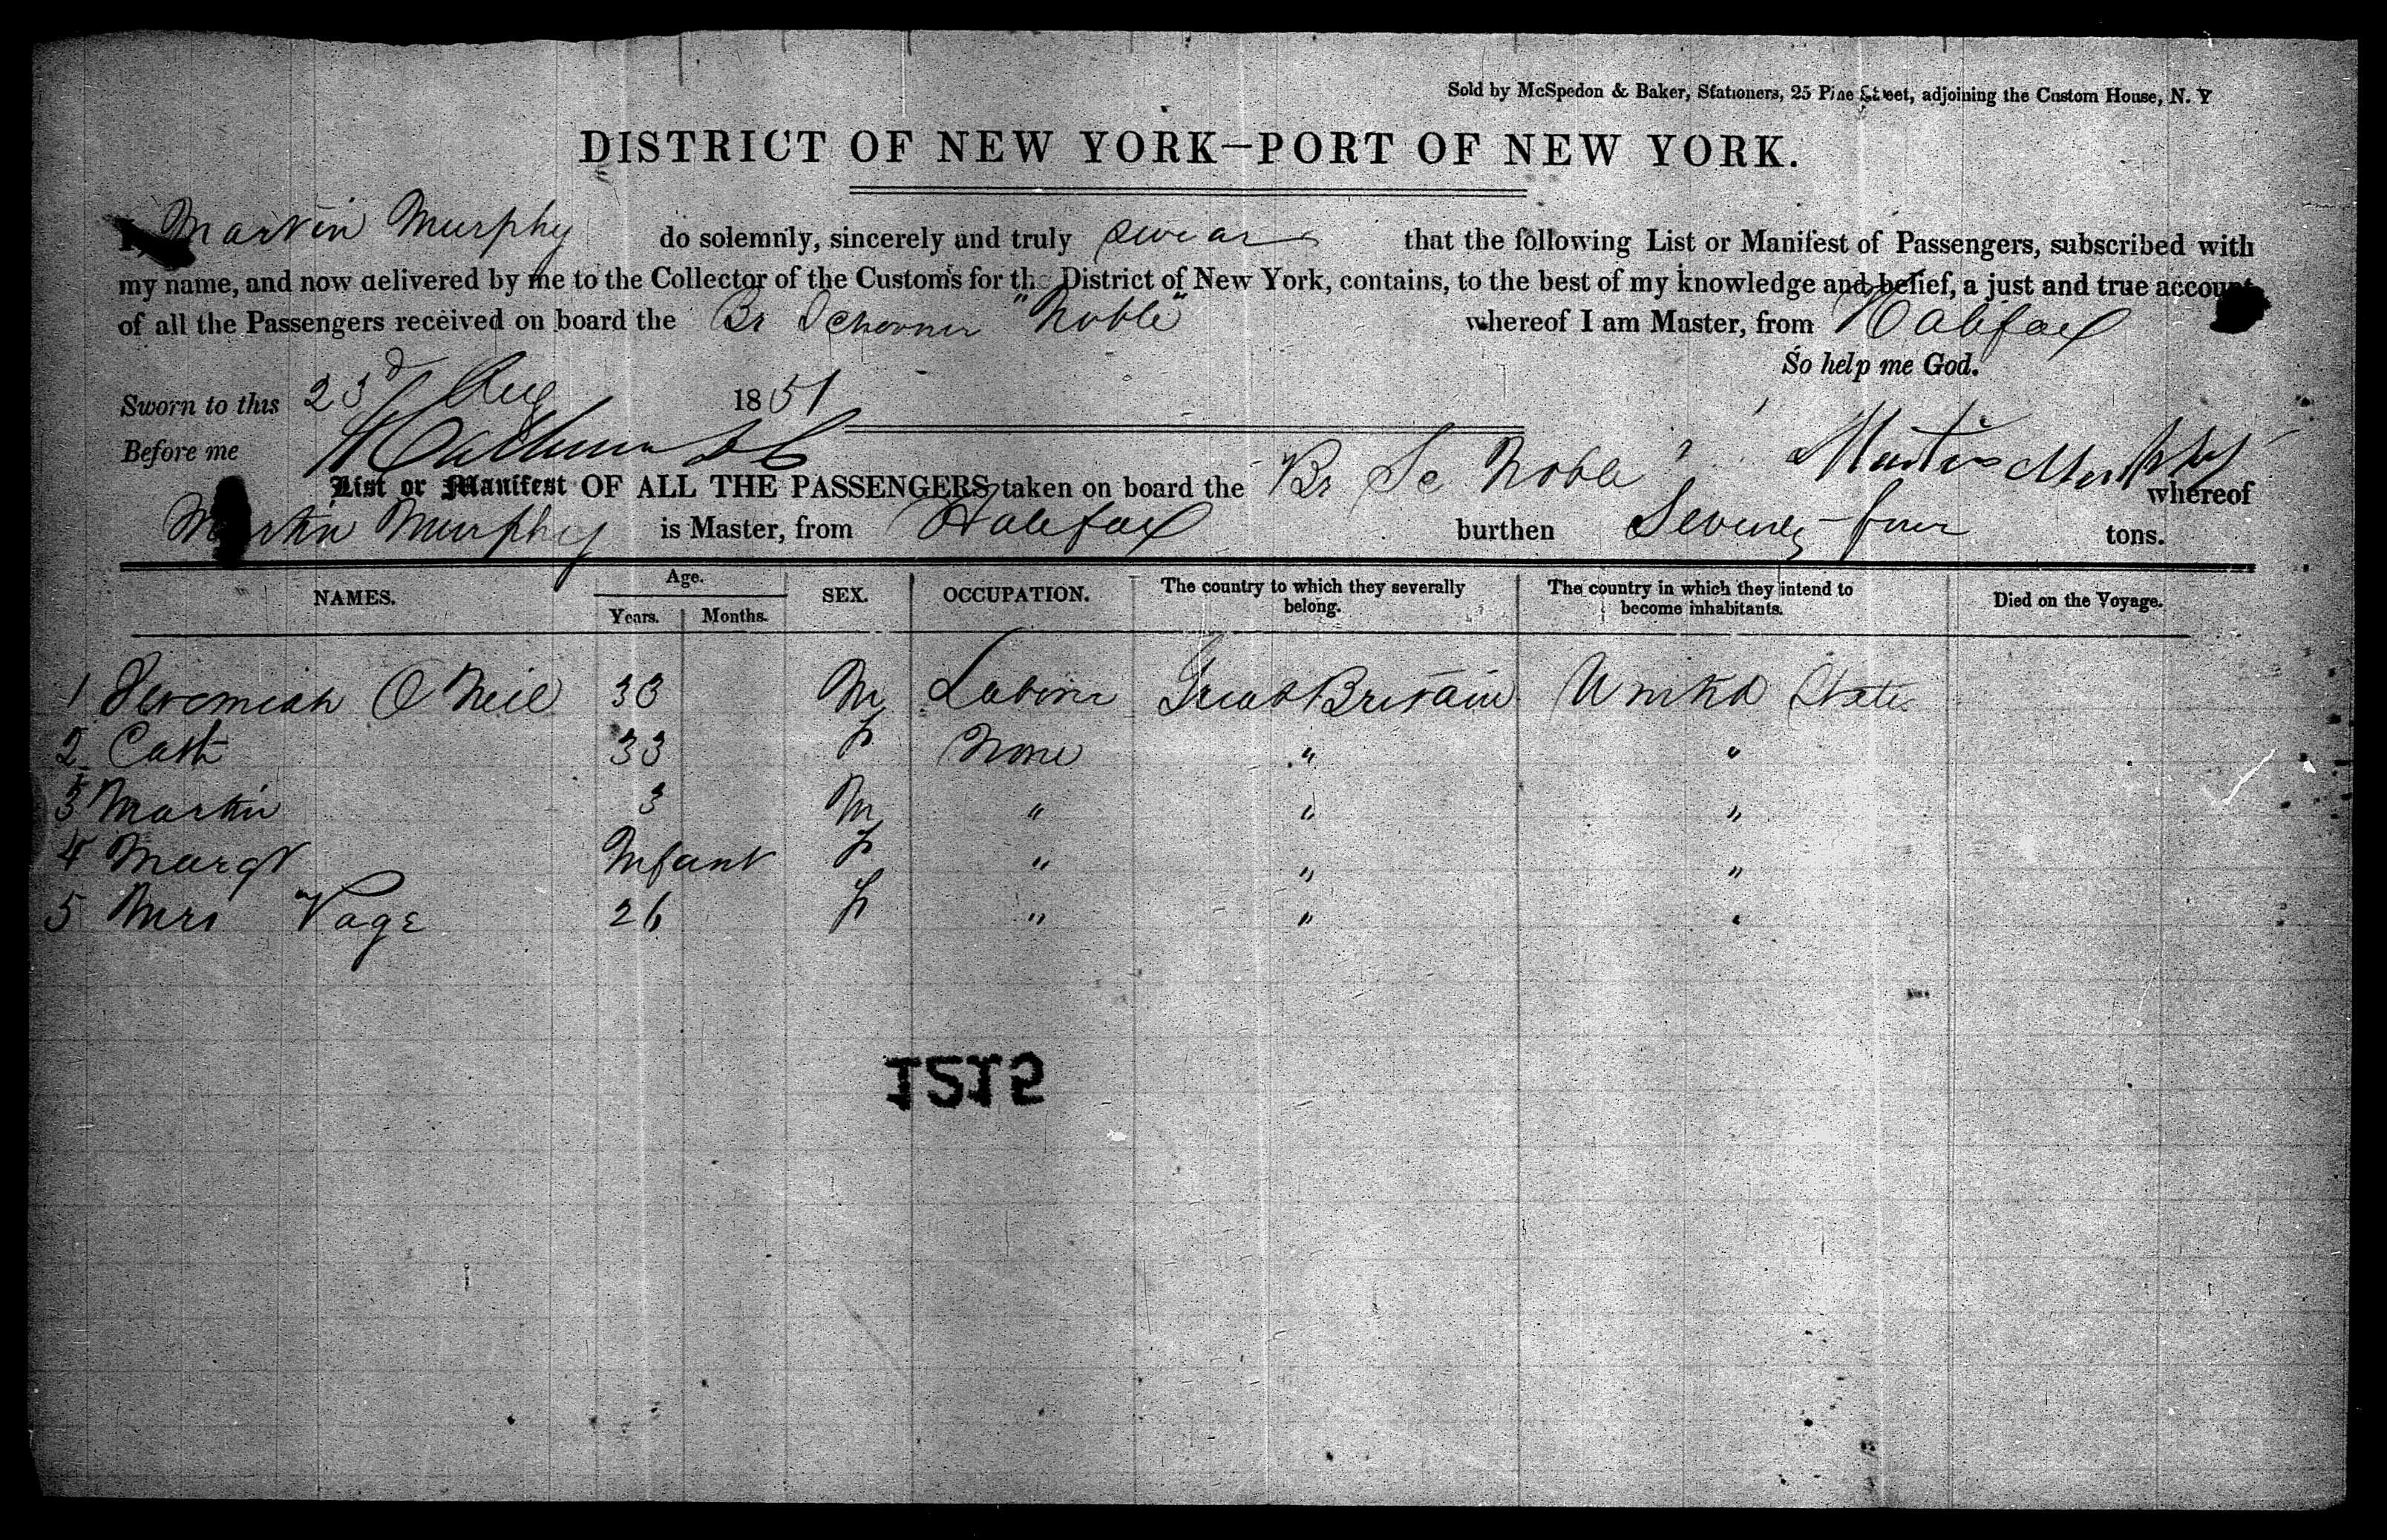 Sold by McSpedon & Baker, Stationers, 25 Pine Street, adjoining the Custom House, N. Y
DISTRICT OF NEW YORK—PORT OF NEW YORK.
I, Martin Murphy do solemnly, sincerely and truly swear that the following List or Manifest of Passengers, subscribed with
my name, and now delivered by me to the Collector of the Customs for the District of New York, contains, to the best of my knowledge and belief, a just and true account
of all the Passengers received on board the Br Schooner "Noble" whereof I am Master, from Halifax
So help me God.
Sworn to this 23d Aug 1851
Before me
Martin Murphy
List or Manifest OF ALL THE PASSENGERS taken on board the Br Sc Noble" whereof
Martin Murphy is Master, from Halifax burthen Seventy-four tons.
NAMES. Age. Years. Months. SEX. OCCUPATION. The country to which they severally belong. The country in which they intend to become inhabitants. Died on the Voyage.
1 Jeremiah O Neil 33 M Laborer Great Britain United States
2 Cath 33 F None " "
3 Martin 3 M " " "
4 Margt Infant F " " "
5 Mrs Page 26 F " " "
1212